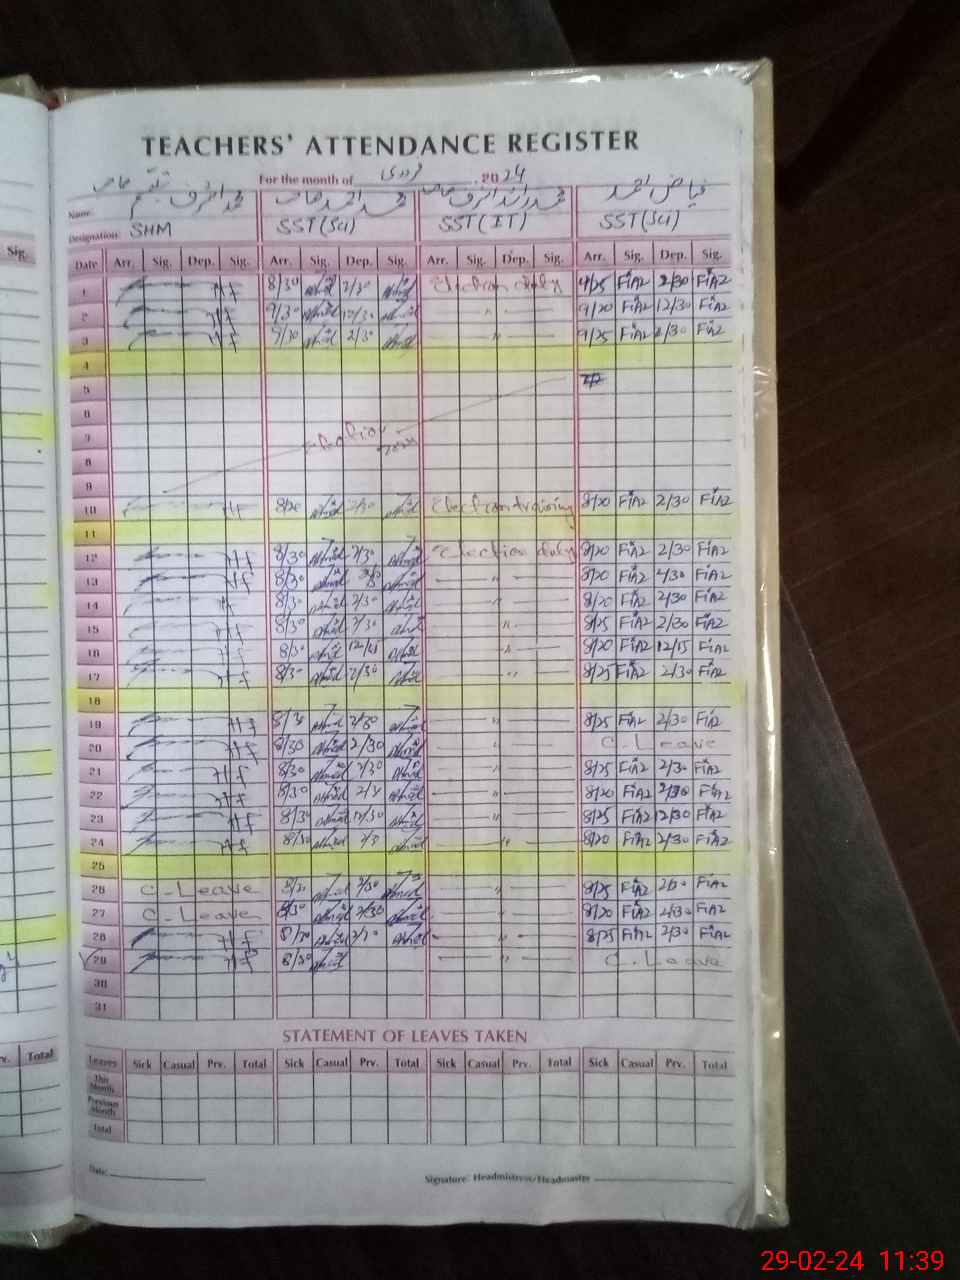 TEACHERS' ATTENDANCE REGISTER
For the month of فروری 2024
Name: محمد اشرف محمد احمد محمد راشد اشرف فیاض احمد
Designation: SHM SST(Sci) SST(IT) SST(Sci)
Sig.
Date Arr. Sig. Dep. Sig. Arr. Sig. Dep. Sig. Arr. Sig. Dep. Sig. Arr. Sig. Dep. Sig.
1 8/30 2/30 Election duty 9/25 FiAZ 2/30 FiAZ
2 9/30 12/30 " 9/20 FiAZ 12/30 FiAZ
3 9/30 2/30 " 9/25 FiAZ 2/30 FiAZ
4
5
6
7
8
9
10 8/20 2/30 Election training 8/20 FiAZ 2/30 FiAZ
11
12 8/30 2/30 Election duty 8/20 FiAZ 2/30 FiAZ
13 8/30 " 8/20 FiAZ 2/30 FiAZ
14 8/30 2/30 " 8/20 FiAZ 2/30 FiAZ
15 8/30 2/30 " 8/25 FiAZ 2/30 FiAZ
16 8/30 12/15 " 8/20 FiAZ 12/15 FiAZ
17 8/30 2/30 " 8/25 FiAZ 2/30 FiAZ
18
19 8/30 2/30 " 8/25 FiAZ 2/30 FiAZ
20 8/30 2/30 " C. Leave
21 8/30 2/30 " 8/25 FiAZ 2/30 FiAZ
22 8/30 2/30 " 8/20 FiAZ 2/30 FiAZ
23 8/30 12/30 " 8/25 FiAZ 12/30 FiAZ
24 8/30 2/30 " 8/20 FiAZ 2/30 FiAZ
25
26 C. Leave 2/30 " 8/25 FiAZ 2/30 FiAZ
27 C. Leave 8/30 2/30 " 8/20 FiAZ 2/30 FiAZ
28 8/30 2/30 " 8/25 FiAZ 2/30 FiAZ
29 8/30 " C. Leave
30
31
STATEMENT OF LEAVES TAKEN
Prv. Total
Leaves Sick Casual Prv. Total Sick Casual Prv. Total Sick Casual Prv. Total Sick Casual Prv. Total
This Month
Previous Month
Total
Date:
Signature: Headmistress/Headmaster
29-02-24 11:39